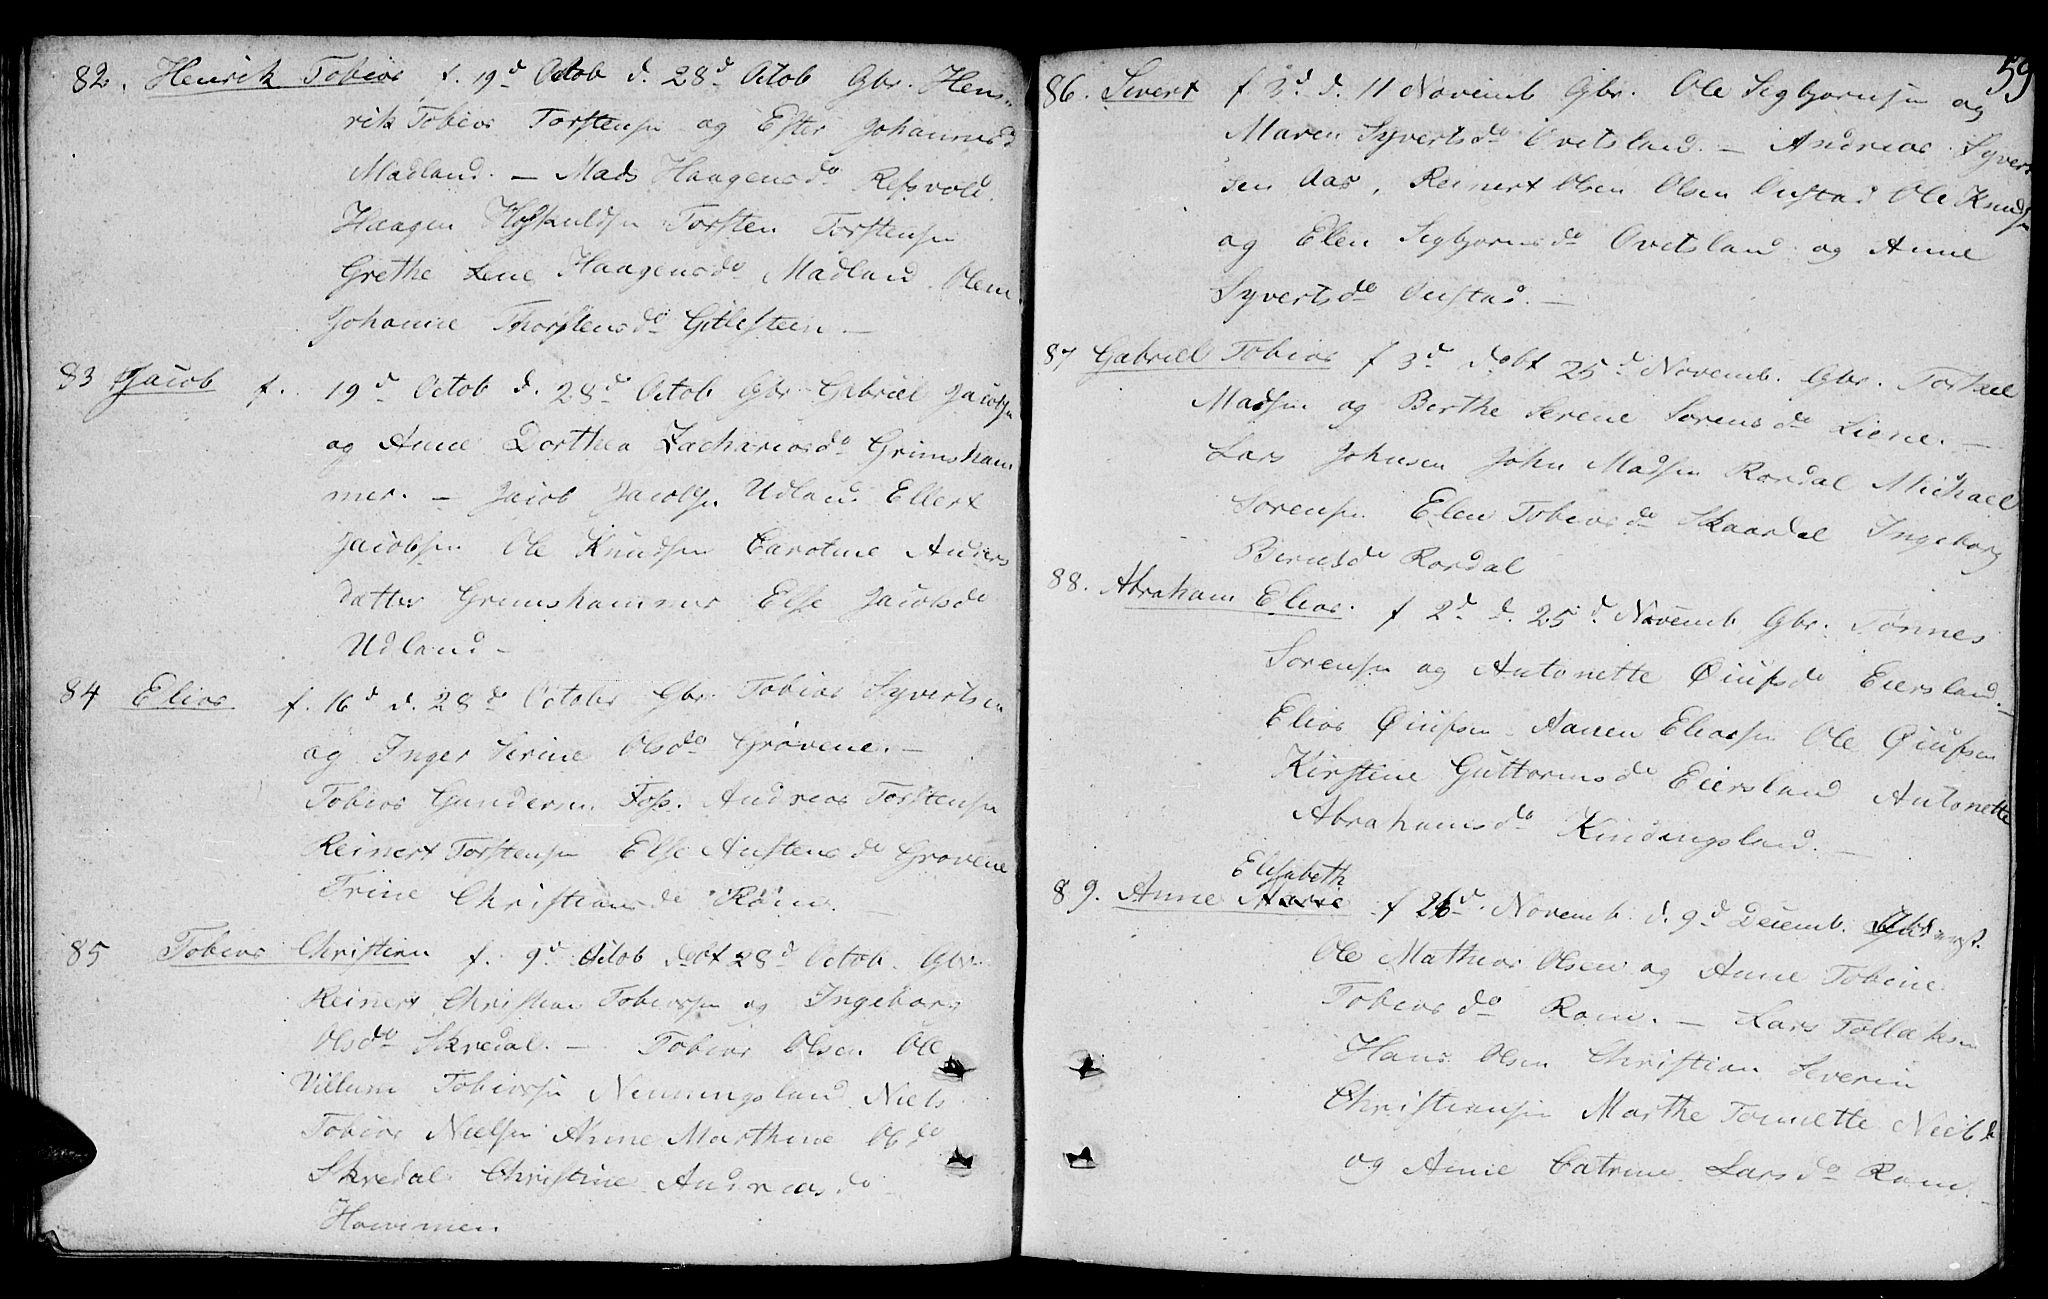 82. Henrik Tobias f. 19d Octob d. 28d Octob Gbr. Hen-
rik Tobias Torstensen og Ester Johannesd
Madland. — Mads Haagensdo Refsvold.
Haagen Høskuldsen Torsten Torstensen
Grethe Lene Haagensdo Madland. Olene
Johanne Thorstensdo Gitlesteen. —
83 Jacob f. 19d Octob d. 28d Octob Gbr Gabriel Jacobsen
og Anne Dorthea Zachariasdo Grimsham
mer. — Jacob Jacobsen Udland Ellert
Jacobsen Ole Knudsen Caroline Anders
datter Grimshammer Else Jacobsdo
Udland —
84 Elias f. 16d d. 28d October Gbr. Tobias Syvertsen
og Inger Serine Olsdo Grøvene. —
Tobias Gundersen Foss. Andreas Torstensen
Reinert Torstensen Else Austensdo Grøvene
Trine Christiansdo Røim. —
85 Tobias Christian f. 9d Octob dobt 28d Octob. Gbr.
Reinert Christian Tobiassen og Ingeborg
Olsdo Skredal. — Tobias Olsen Ole
Villum Tobiassen Nenningsland Niels
Tobias Nielsen Anne Marthine Olsdo
Skredal Christine Andreasdo
59
86. Sivert f 3d d. 11 Novemb Gbr. Ole Segbjornsen og
Maren Syvertsdo Ovetsland. — Andreas Syvert
sen Aas, Reinert Olsen Olsen Ovestad Ole Knudsen
og Elen Segbjornsdo Ovetsland og Anne
Syvertsdo Oustad. —
87 Gabriel Tobias f 3d dobt 25d Novemb. Gbr. Torkel
Madsen og Berthe Serene Sorensdo Liene. —
Lars Johnsen John Madsen Rordal Michael
Sorensen Elen Tobiasdo Skaardal Ingeborg
Berntsdo Rordal
88. Abraham Elias. f 2d d. 25d Novemb Gbr. Tønnes
Sorensen og Antonette Øiufsdo Eiersland. —
Elias Øiufsen Nanen Eliassen Ole Øiufsen
Kirstine Guttormsdo Eiersland Antonette
Abrahamsdo Kindingsland. —
Elisabeth
89. Anne Marie f 26d. Novemb. d. 9d Decemb.
Ole Mathias Olsen og Anne Tobine
Tobiasdo Rom. — Lars Tollaksen
Hans Olsen Christian Severin
Christiansen Marthe Tonnette Neilsd
og Anne Catrine Larsdo Rom. —